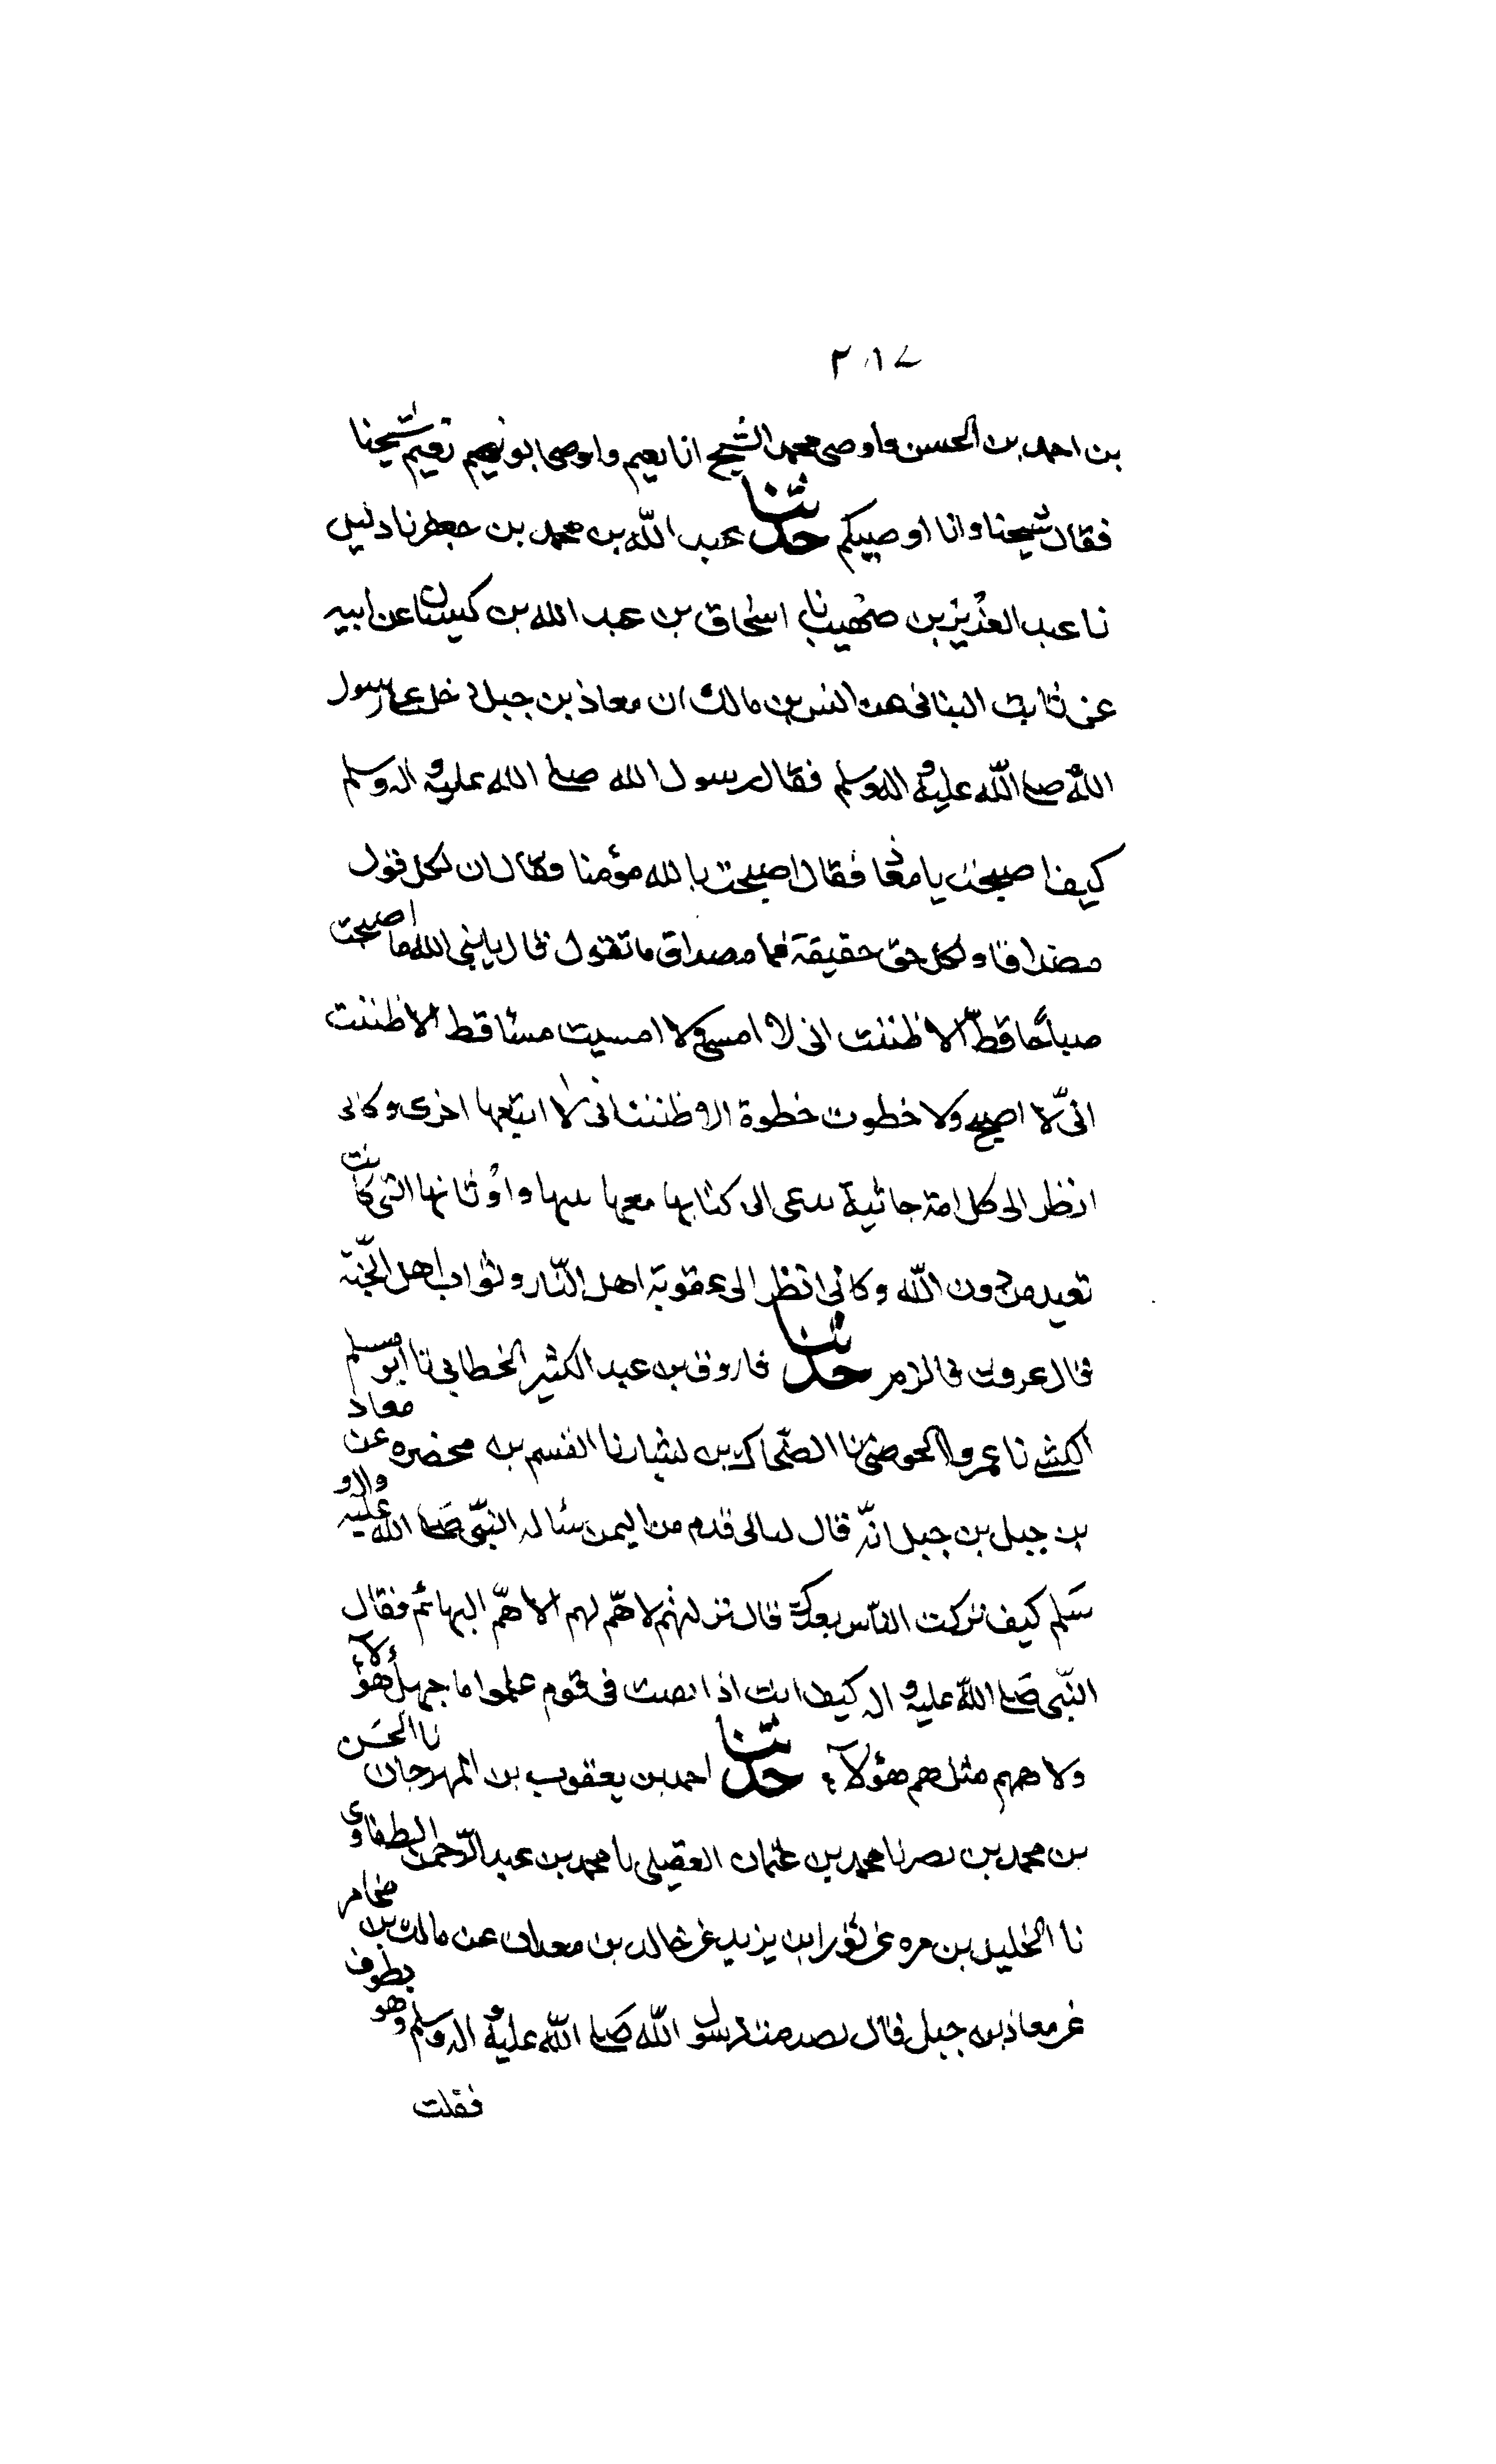 ٢٠١٧
بن احمد بن الحسن واوصى محمد الشيخ انا نعيم واوصى ابو نعيم نعيم شيخنا
فقال شيخنا وانا اوصيكم حدثنا عبد الله بن محمد بن جعفر نا دليل
نا عبد العزيز بن صهيب نا اسحاق بن عبد الله بن كيسان عن ابيه
عن ثابت البنانى عن انس بن مالك ان معاذ بن جبل دخل على رسول
الله صلى الله عليه واله وسلم فقال رسول الله صلى الله عليه واله وسلم
كيف اصبحت يا معاذ فقال اصبحت بالله مؤمنا وقال ان لكل قول
مصداقا ولكل حق حقيقة فما مصداق ما تقول قال يا نبي الله ما اصبحت
صباحًا قطّ الا ظننت انى لا امسي ولا امسيت مسًا قط الا ظننت
انّى لا اصبح ولا خطوت خطوة الا ظننت انى لا اتبعها اخرى وكانى
انظر الى كل امة جاثية تدعى الى كتابها معها نبيها واوثانها التى كانت
تعبد من دون الله وكانى انظر الى عقوبة اهل النّار وثواب اهل الجنّة
قال عرفت فالزمر حدثنا فاروق بن عبد الكثير الخطابى نا ابو مسلم
الكشي نا عمرو الحوضى نا الضّحاك بن يشار نا القسم بن مخضره عن معاذ
بن جبل بن جبل انّه قال لما لى قدم من اليمن سأله النبّى صلى الله عليه واله و
سَلم كيف تركت الناس بعدك قال تركتهم لا همّ لهم الا همّ البهائم فقال
النّبى صَلى الله عليه و اله كيف انت اذا بقيت فى قوم علموا ما جهل هؤلآء
ولا همهم مثل هم هؤلآء حدثنا احمد بن يعقوب بن المهرجان نا الحَسن
بن محمد بن نصر نا محمد بن عثمان العقيلى نا محمد بن عبد الرّحمن الطفاوى
نا الخليل بن مره عن ثور ابن يزيد عن خالد بن معدان عن مالك بن يخامر
عن معاذ بن جبل قال تصديت لرسول الله صَلى الله عليه و اله وسلم وهو يطوف
فقلت